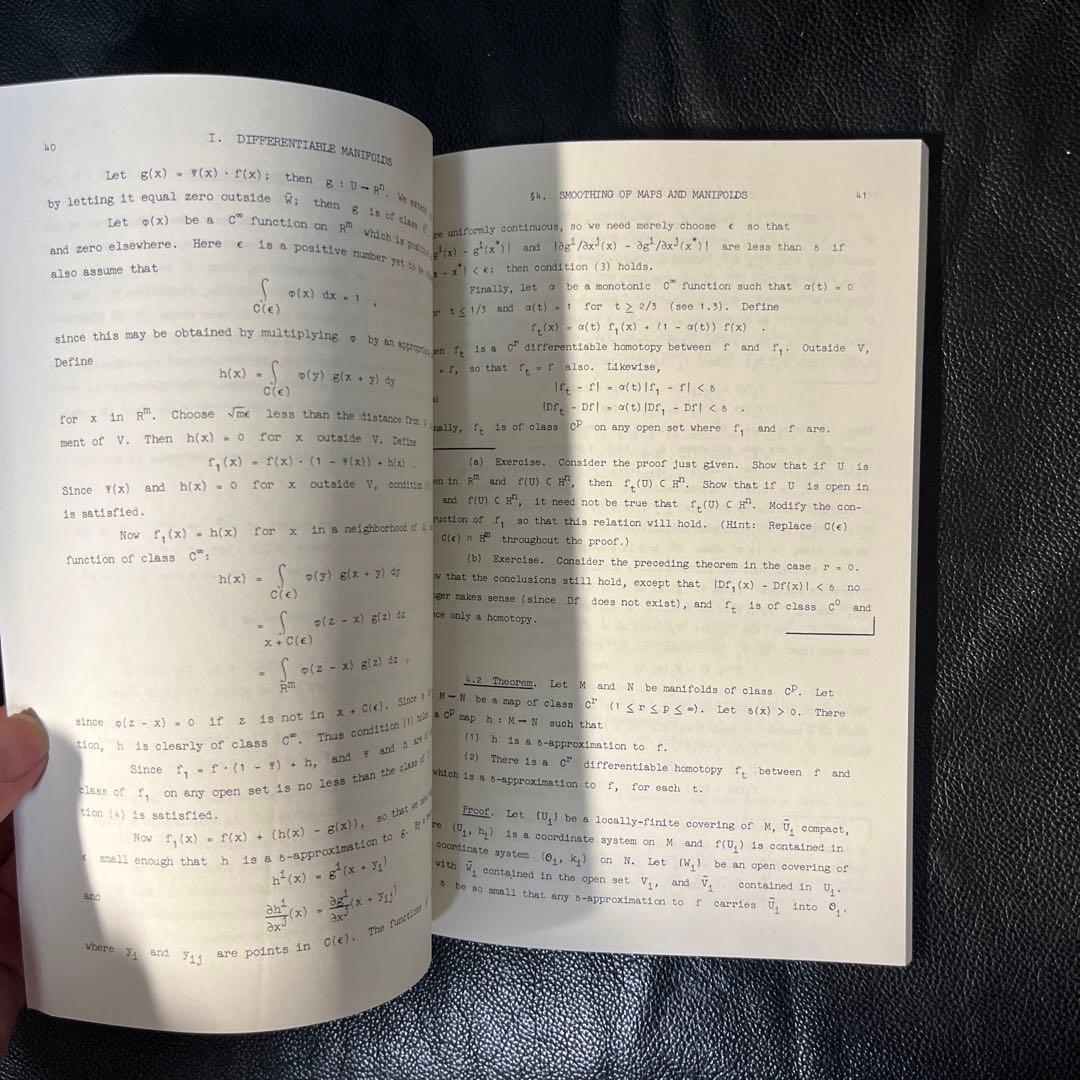 40
I. DIFFERENTIABLE MANIFOLDS
Let g(x) = Ψ(x) · f(x); then g : U → Rⁿ. We extend
by letting it equal zero outside W̄; then g is of class
Let φ(x) be a C^∞ function on R^m which is positive
and zero elsewhere. Here ε is a positive number yet to be
also assume that
∫_{C(ε)} φ(x) dx = 1 ,
since this may be obtained by multiplying φ by an
Define
h(x) = ∫_{C(ε)} φ(y) g(x + y) dy
for x in R^m. Choose √mε less than the distance from
ment of V. Then h(x) = 0 for x outside V. Define
f₁(x) = f(x) · (1 - Ψ(x)) + h(x) .
Since Ψ(x) and h(x) = 0 for x outside V, condition
is satisfied.
Now f₁(x) = h(x) for x in a neighborhood of
function of class C^∞:
h(x) = ∫_{C(ε)} φ(y) g(x + y) dy
= ∫_{x + C(ε)} φ(z - x) g(z) dz
= ∫_{R^m} φ(z - x) g(z) dz ,
since φ(z - x) = 0 if z is not in x + C(ε). Since
tion, h is clearly of class C^∞. Thus condition (1)
Since f₁ = f · (1 - Ψ) + h, and Ψ and h are
class of f₁ on any open set is no less than the class of
tion (4) is satisfied.
Now f₁(x) = f(x) + (h(x) - g(x)), so that we
ε small enough that h is a δ-approximation to g. By
hⁱ(x) = gⁱ(x + yᵢ)
and
∂hⁱ/∂xʲ(x) = ∂gⁱ/∂xʲ(x + yᵢⱼ)
where yᵢ and yᵢⱼ are points in C(ε). The functions
§4. SMOOTHING OF MAPS AND MANIFOLDS
41
re uniformly continuous, so we need merely choose ε so that
gⁱ(x) - gⁱ(x*)| and |∂gⁱ/∂xʲ(x) - ∂gⁱ/∂xʲ(x*)| are less than δ if
x - x*| < ε; then condition (3) holds.
Finally, let α be a monotonic C^∞ function such that α(t) = 0
t ≤ 1/3 and α(t) = 1 for t ≥ 2/3 (see 1.3). Define
f_t(x) = α(t) f₁(x) + (1 - α(t)) f(x) .
en f_t is a C^r differentiable homotopy between f and f₁. Outside V,
= f, so that f_t = f also. Likewise,
|f_t - f| = α(t)|f₁ - f| < δ
d
|Df_t - Df| = α(t)|Df₁ - Df| < δ .
nally, f_t is of class C^p on any open set where f₁ and f are.
(a) Exercise. Consider the proof just given. Show that if U is
en in R^m and f(U) ⊂ Hⁿ, then f_t(U) ⊂ Hⁿ. Show that if U is open in
and f(U) ⊂ Hⁿ, it need not be true that f_t(U) ⊂ Hⁿ. Modify the con-
ruction of f₁ so that this relation will hold. (Hint: Replace C(ε)
C(ε) ∩ H^m throughout the proof.)
(b) Exercise. Consider the preceding theorem in the case r = 0.
w that the conclusions still hold, except that |Df₁(x) - Df(x)| < δ no
ger makes sense (since Df does not exist), and f_t is of class C⁰ and
ce only a homotopy.
4.2 Theorem. Let M and N be manifolds of class C^p. Let
M → N be a map of class C^r (1 ≤ r ≤ p ≤ ∞). Let δ(x) > 0. There
a C^p map h : M → N such that
(1) h is a δ-approximation to f.
(2) There is a C^r differentiable homotopy f_t between f and
which is a δ-approximation to f, for each t.
Proof. Let {Uᵢ} be a locally-finite covering of M, Ūᵢ compact,
re (Uᵢ, hᵢ) is a coordinate system on M and f(Uᵢ) is contained in
coordinate system (Θᵢ, kᵢ) on N. Let {Wᵢ} be an open covering of
with W̄ᵢ contained in the open set Vᵢ, and V̄ᵢ contained in Uᵢ.
δ be so small that any δ-approximation to f carries Ūᵢ into Θᵢ.